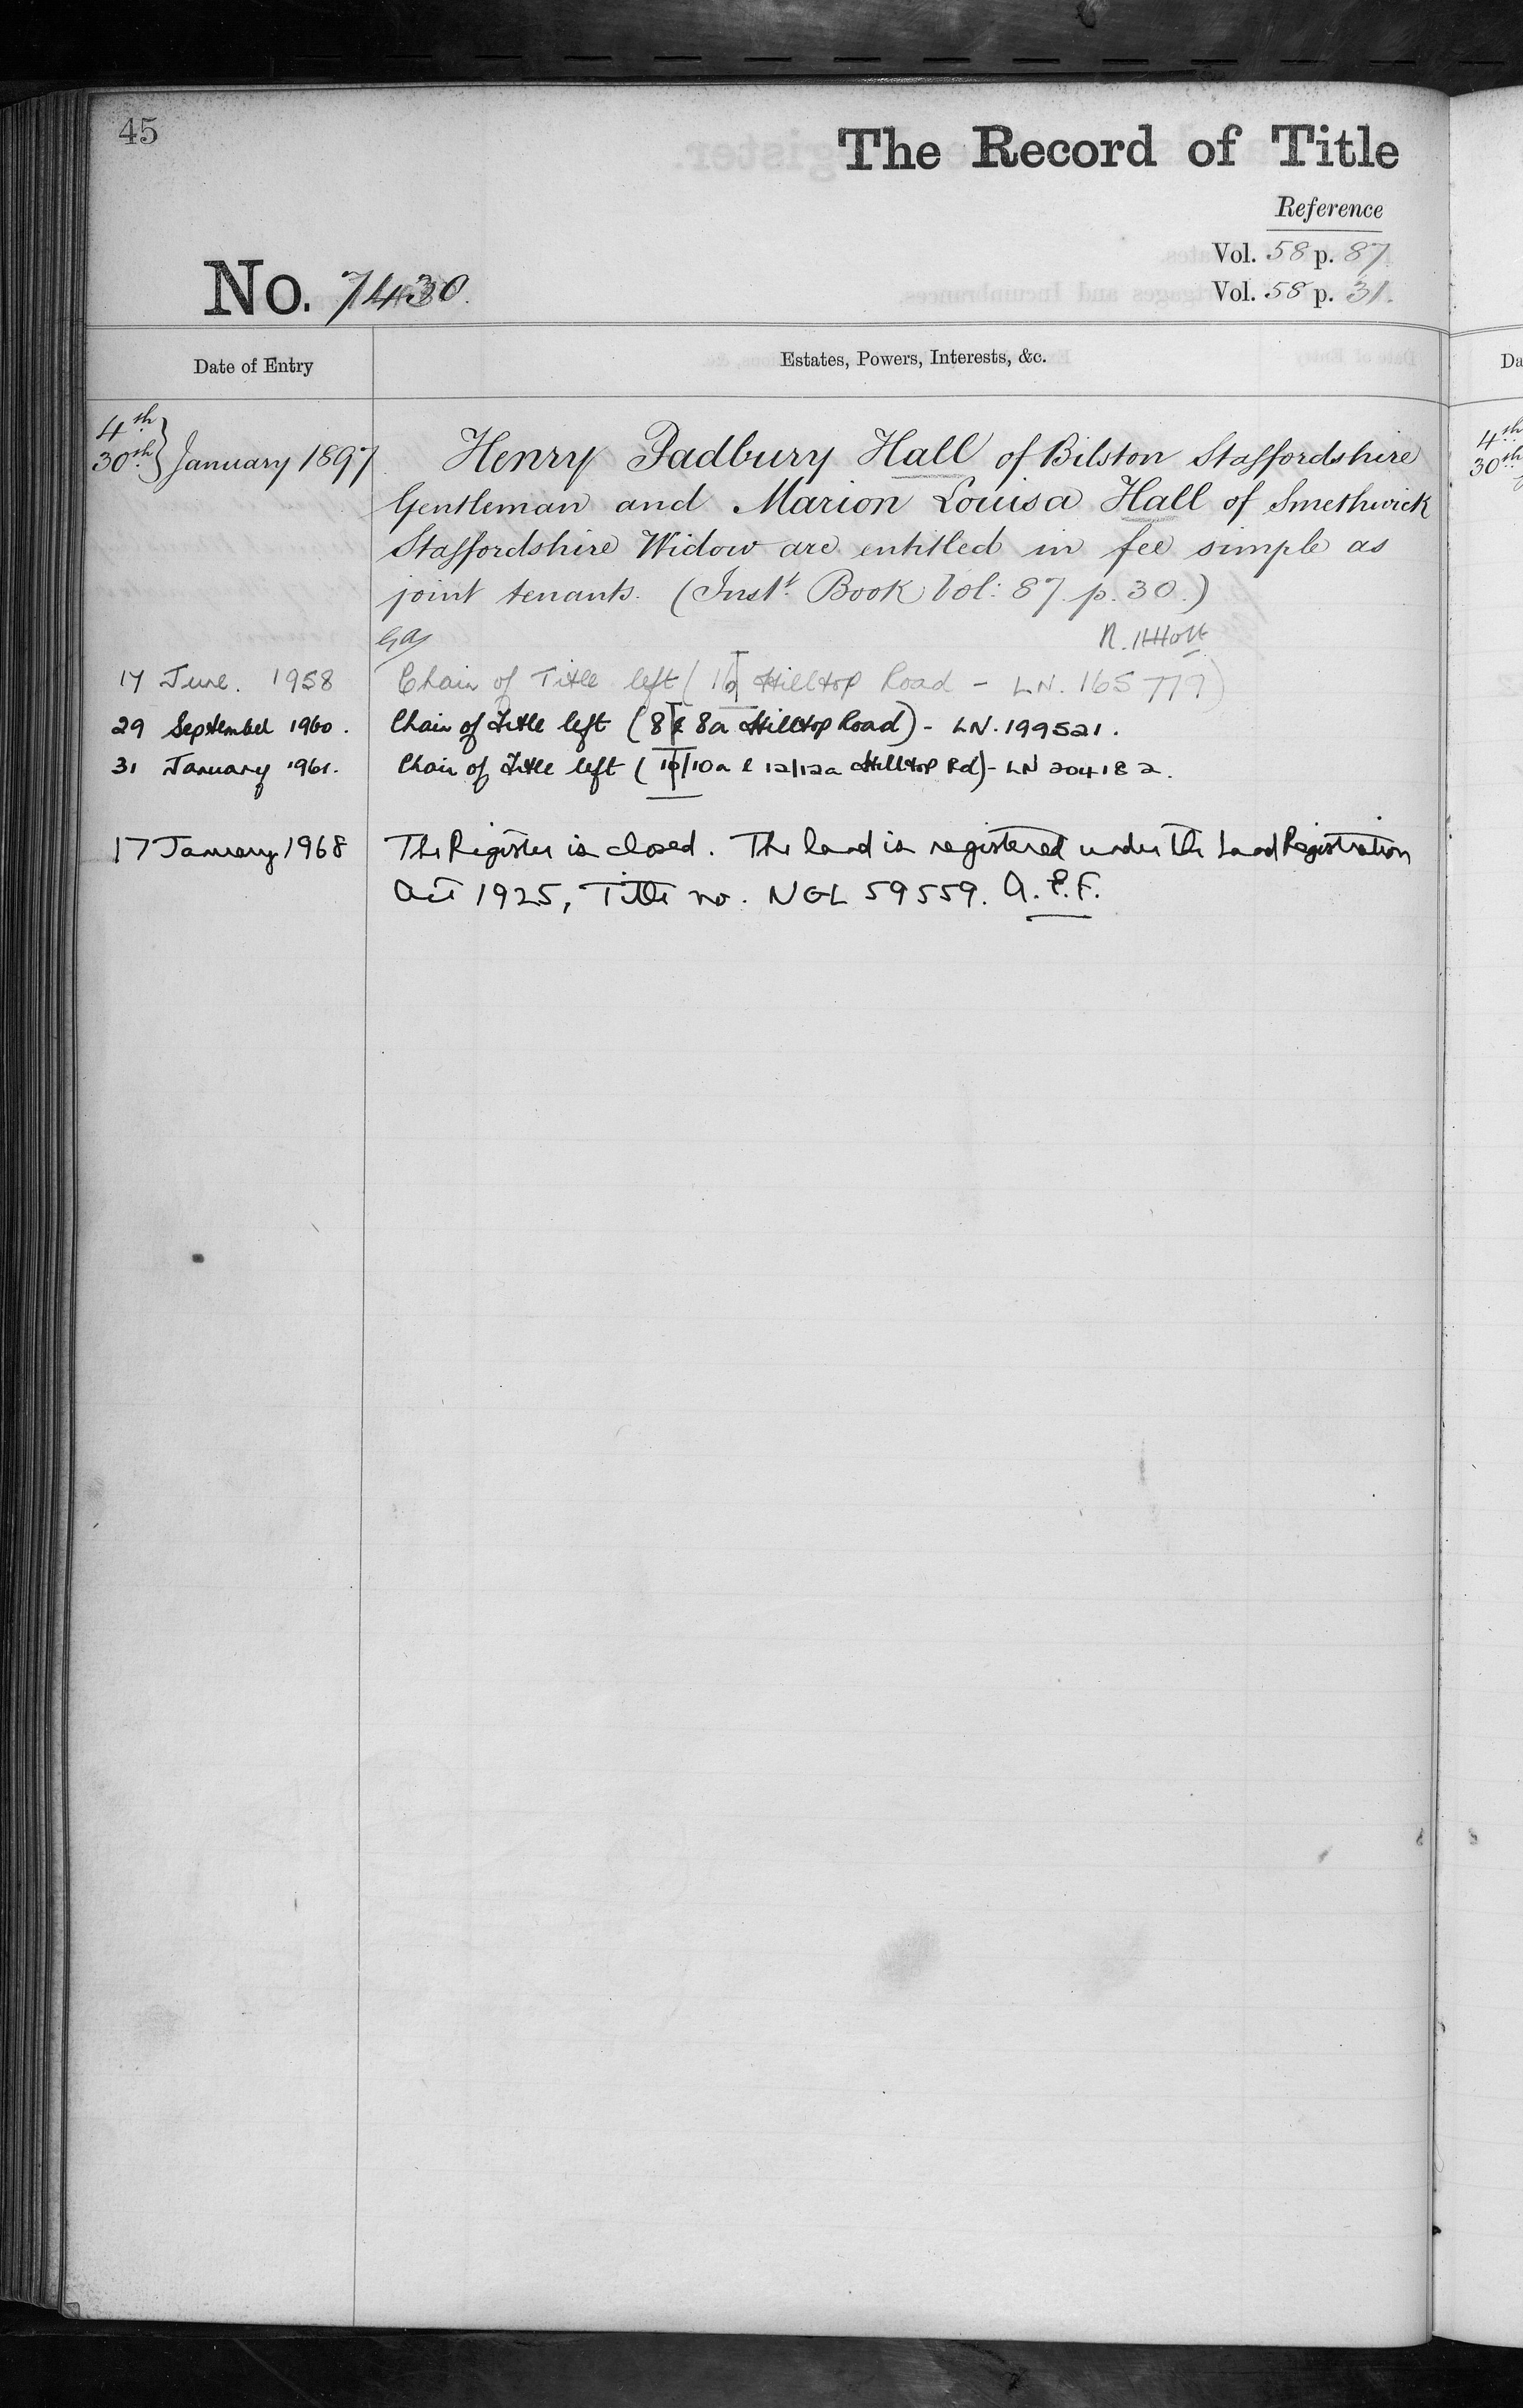 45
The Record of Title
Reference
Vol. 58 p. 87
No. 7430.
Vol. 58 p. 31.
Date of Entry
Estates, Powers, Interests, &c.
4th
30th } January 1897
Henry Padbury Hall of Bilston Staffordshire
Gentleman and Marion Louisa Hall of Smethwick
Staffordshire Widow are entitled in fee simple as
joint tenants. (Inst. Book Vol: 87. p. 30.)
R. H Holt
17 June. 1958 Chain of Title left ( Hilltop Road - LN. 165779)
29 September 1960. Chain of Title left (8 & 8a Hilltop Road) - LN. 199521.
31 January 1961. Chain of Title left (10/10a & 12/12a Hilltop Rd) - LN 204182.
17 January 1968 The Register is closed. The land is registered under the Land Registration
Act 1925, Title no. NGL 59559. A.P.F.
Da
4th
30th